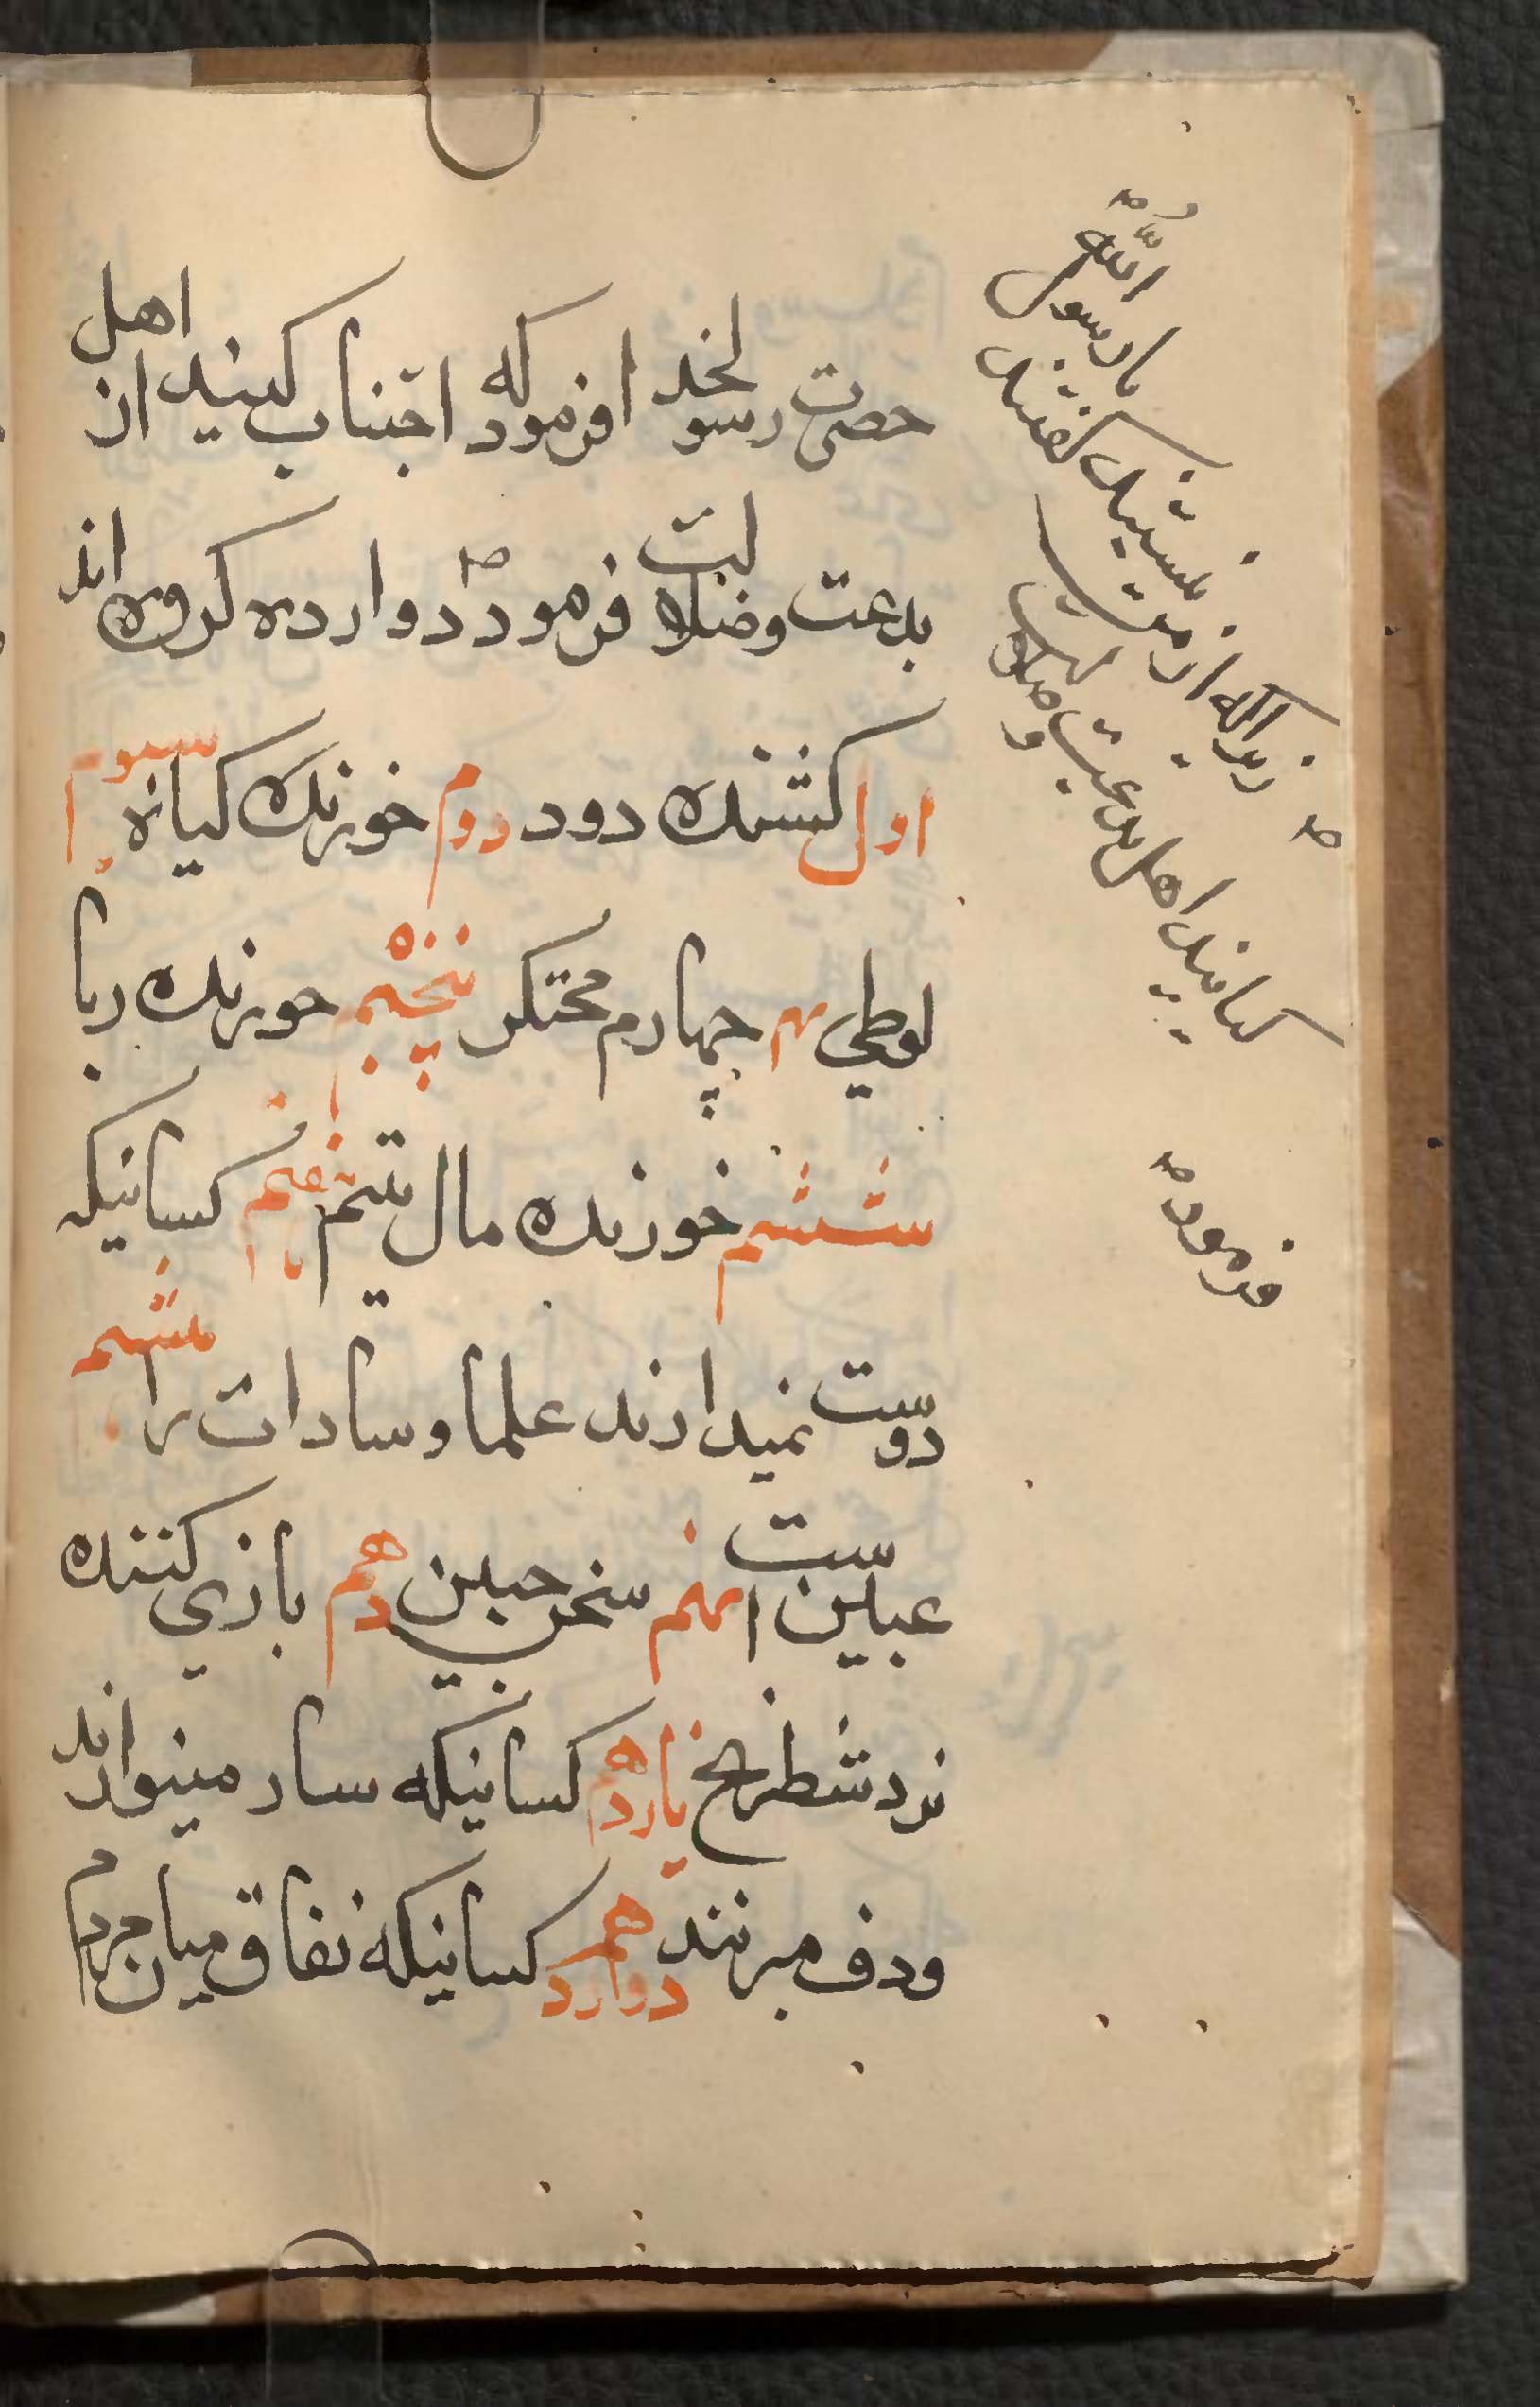 حضرت رسولخدا فرمود که اجتناب کنید از اهل
بدعت وضلالت فرمود دوازده کروه اند
اول کشنده دود دوم خورنده کیاه سیوم
لوطي چهارم محتکر پنجم خورنده ربا
ششم خورنده مال یتیم هفتم کسانیکه
دوست نمیدارند علما و سادات را هشتم
نهم سخن چین دهم بازي کننده
نرد شطرنج یازدهم کسانیکه ساز مینوازند
ودف میزنند دوازدهم کسانیکه نفاق میان مردم
زیراکه از من نیستند گفتند یا رسول الله
کیانید اهل بدعت وضلالت
فرمود